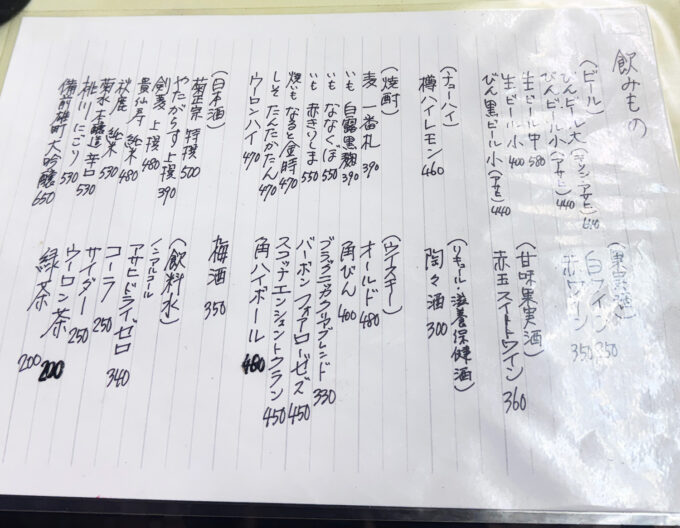 飲みもの
(ビール)
びんビール大(キリン・アサヒ) 610
びんビール小(アサヒ) 440
生ビール中 580
生ビール小 400
びん黒ビール小(アサヒ) 440
(チューハイ)
樽ハイレモン 460
(焼酎)
麦 一番札 390
いも 白霧黒麹 390
いも ななくぼ 550
いも 赤きりしま 550
焼いも なると金時 470
しそ たんたかたん 470
ウーロンハイ 470
(日本酒)
菊正宗 特撰 500
やたがらす 上撰 390
剣菱 上撰 480
貴仙寿 純米 480
秋鹿 純米 530
菊水 本醸造 辛口 530
桃川 にごり 530
備前雄町 大吟醸 650
(果実酒)
白ワイン 350
赤ワイン 350
(甘味果実酒)
赤玉スイートワイン 360
(リキュール・滋養保健酒)
陶々酒 300
(ウイスキー)
オールド 480
角びん 400
ブラックニッカクリアブレンド 330
バーボン フォアローゼズ 450
スコッチ エンシェントクラン 450
角ハイボール 480
梅酒 350
(飲料水)
ノンアルコール
アサヒドライゼロ 340
コーラ 250
サイダー 250
ウーロン茶 200
緑茶 200